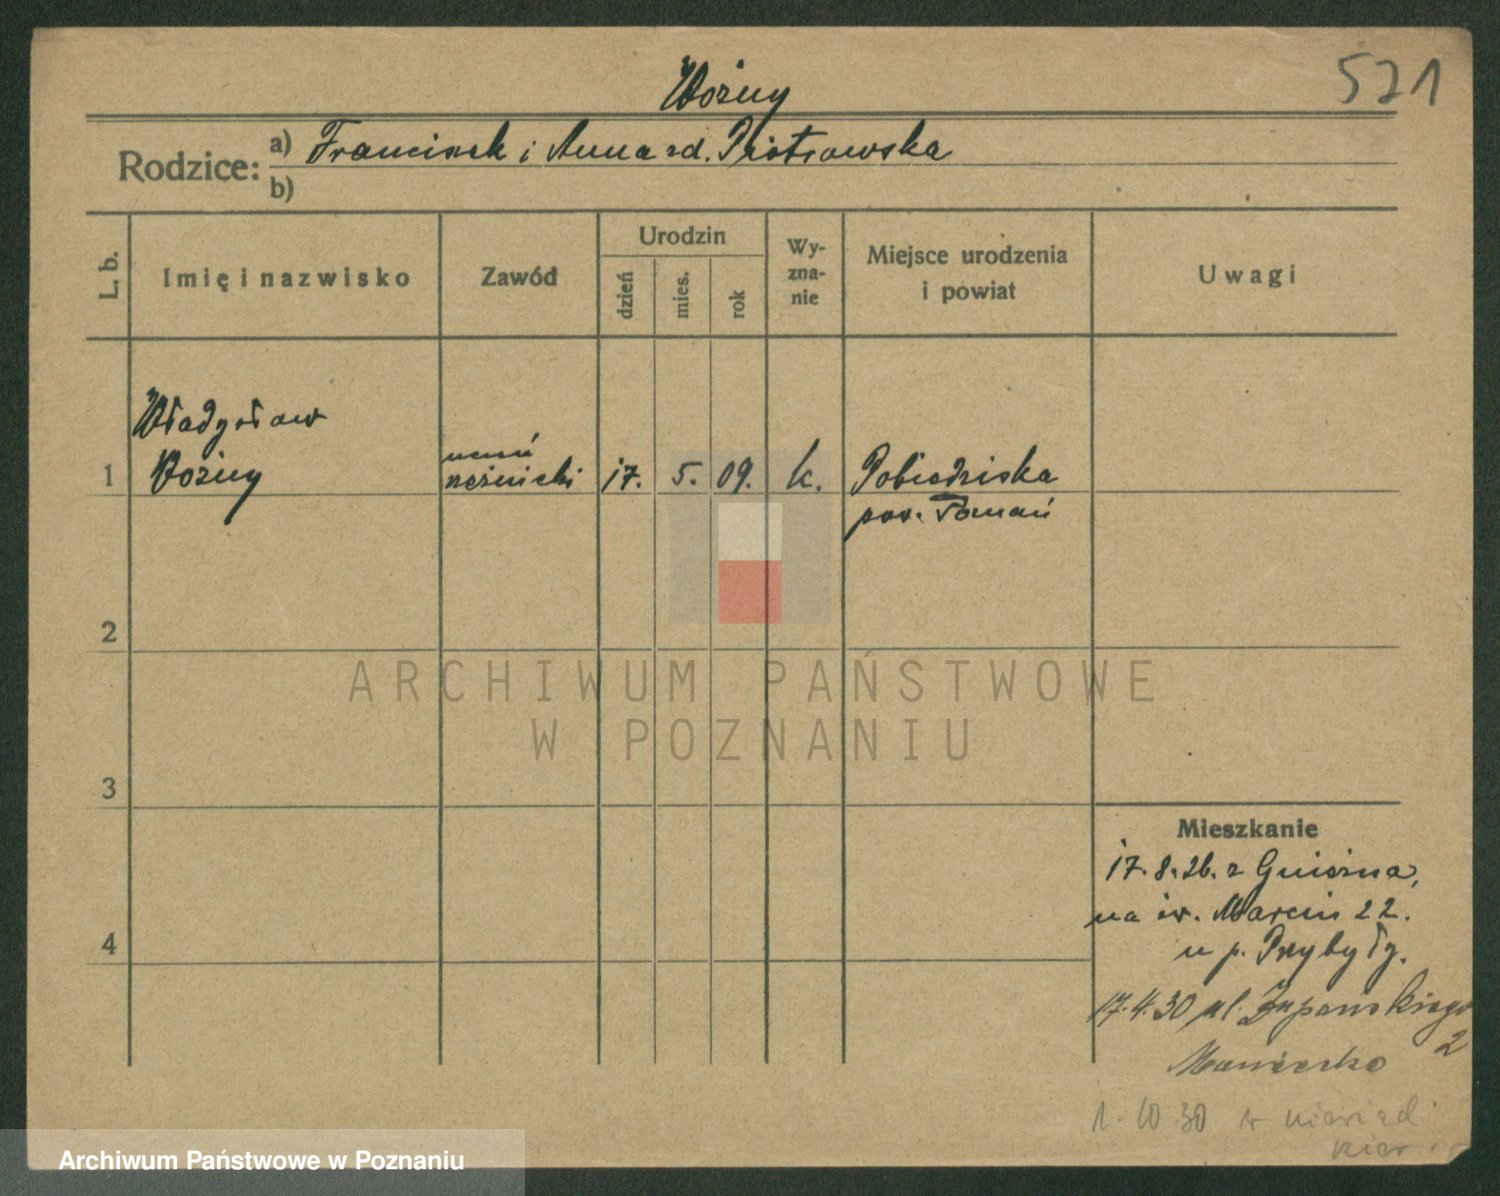 Woźny
521
Rodzice: a) Franciszek i Anna zd. Piotrowska
b)
L. b.
Imię i nazwisko
Zawód
Urodzin
dzień
mies.
rok
Wy-
zna-
nie
Miejsce urodzenia
i powiat
Uwagi
Władysław
1 Woźny
uczeń
rzeźnicki
17. 5. 09. k. Pobiedziska
pow. Poznań
2
3
4
Mieszkanie
17.8.26. z Gniezna,
na św. Marcin 22.
u p. Przybyły.
17.4.30 ul. Żupańskiego
2
1.10.30 w
ARCHIWUM PAŃSTWOWE
W POZNANIU
Archiwum Państwowe w Poznaniu